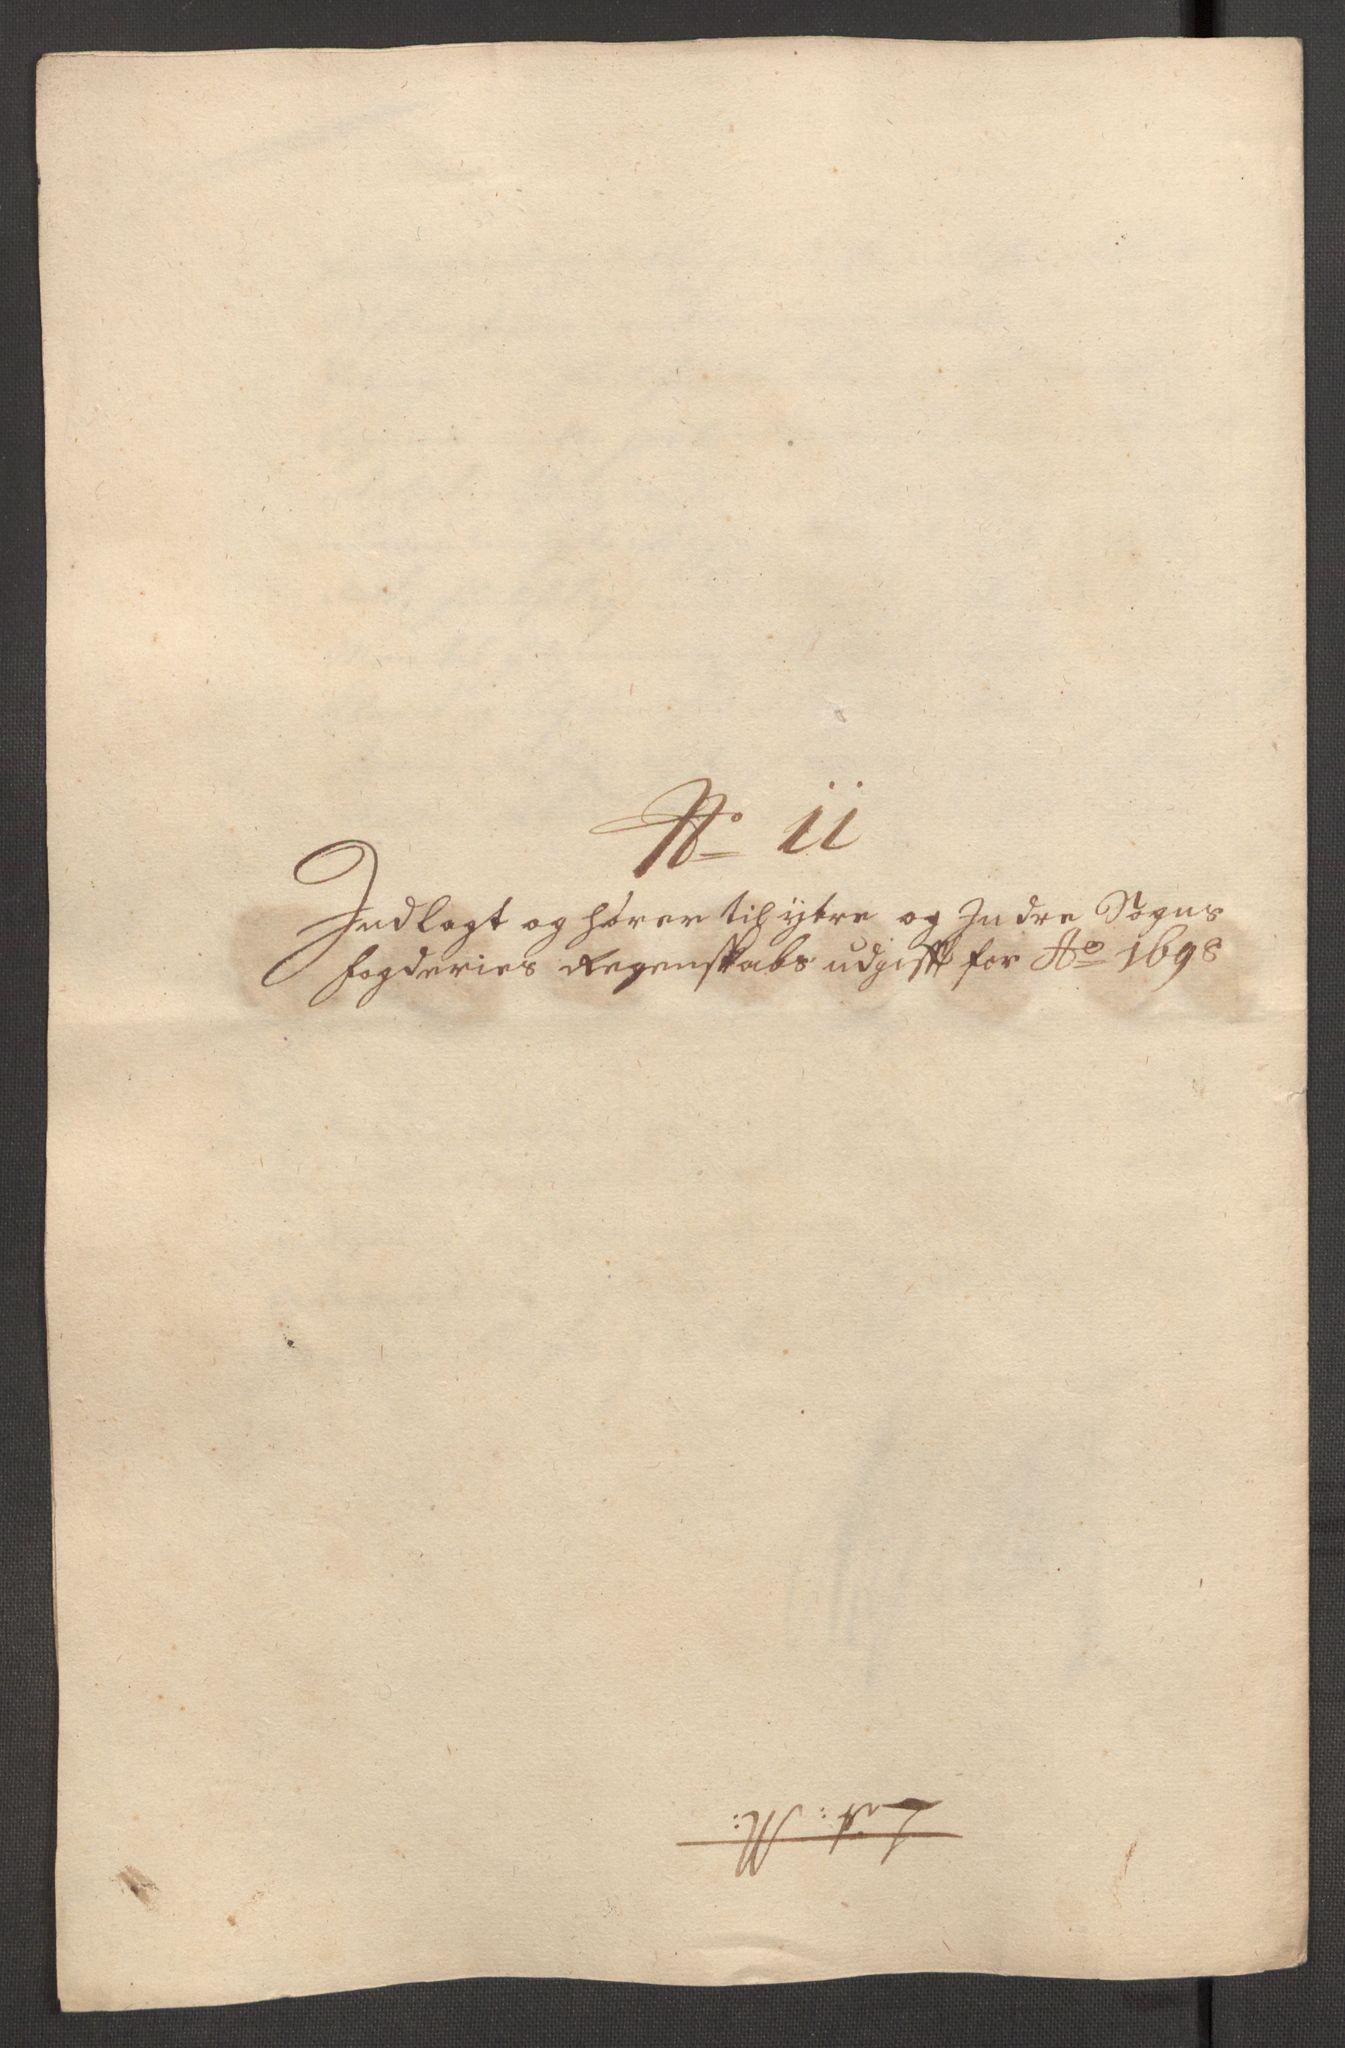 No 11
Indlagt og hører til ytre og Indre Sogns
fogderies Regenskabs udgift for Ao 1698
Lit: M: